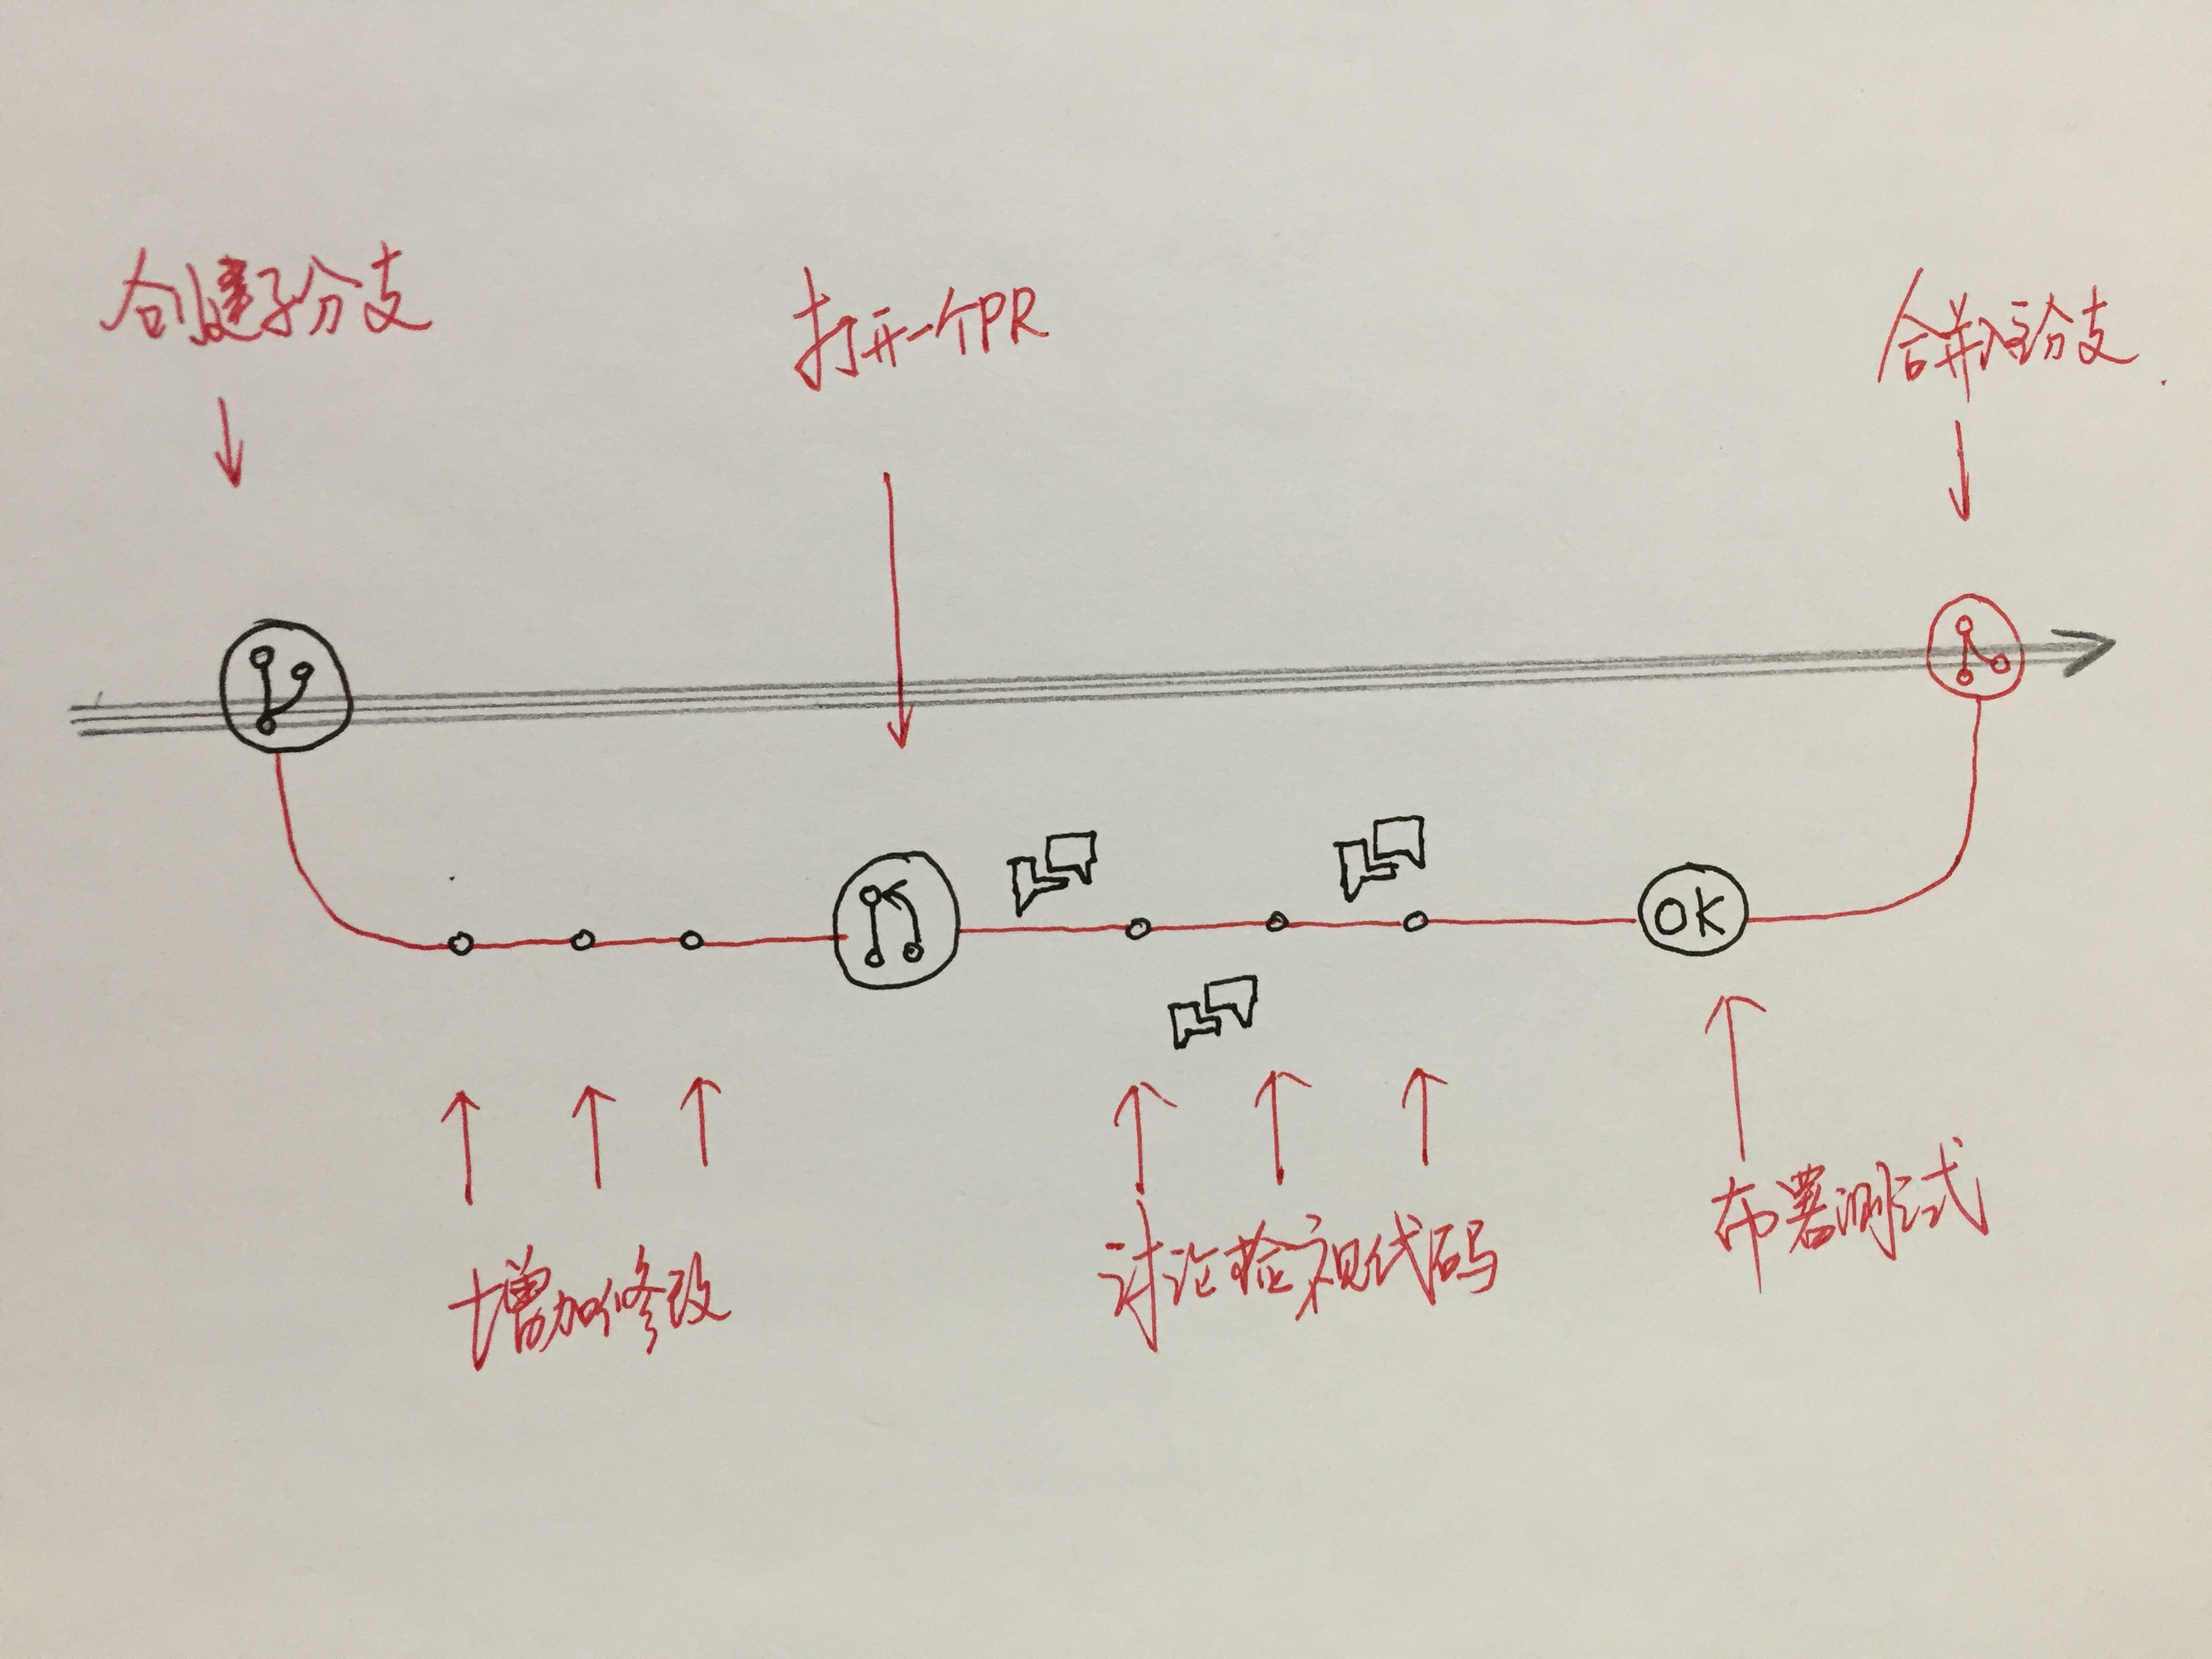 创建子分支
打开一个PR
合并到主分支
OK
增加修改
讨论检视代码
布署测试